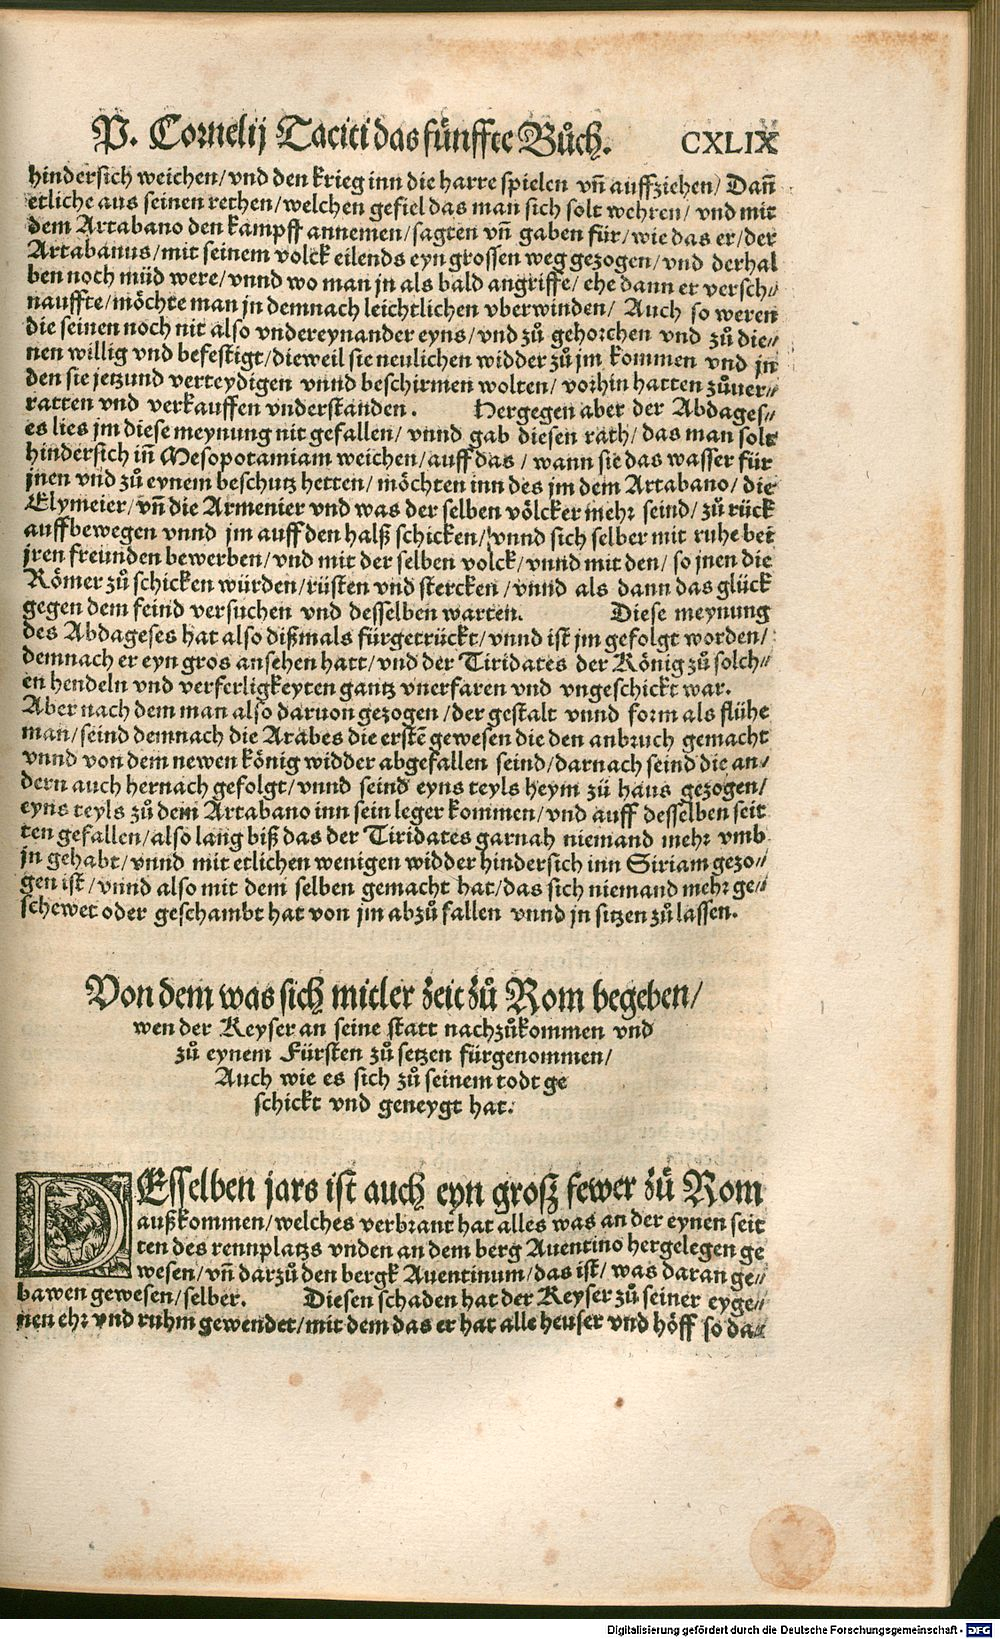 P. Cornelij Taciti das fünffte Bůch. CXLIX
hindersich weichen/ vnd den krieg inn die harre spielen vñ auffziehen/ Dañ
etliche aus seinen rethen/ welchen gefiel das man sich solt wehren/ vnd mit
dem Artabano den kampff annemen/ sagten vñ gaben für/ wie das er/ der
Artabanus/ mit seinem volck eilends eyn grossen weg gezogen/ vnd derhal
ben noch müd were/ vnnd wo man jn als bald angriffe/ ehe dann er versch⸗
nauffte/ möchte man jn demnach leichtlichen vberwinden/ Auch so weren
die seinen noch nit also vndereynander eyns/ vnd zů gehorchen vnd zů die⸗
nen willig vnd befestigt/ dieweil sie neulichen widder zů jm kommen vnd jn
den sie jetzund verteydigen vnnd beschirmen wolten/ vorhin hatten zůuer⸗
ratten vnd verkauffen vnderstanden. Hergegen aber der Abdages⸗
es lies jm diese meynung nit gefallen/ vnnd gab diesen rath/ das man solt
hindersich iñ Mesopotamiam weichen/ auff das/ wann sie das wasser für
jnen vnd zů eynem beschutz hetten/ möchten inn des jm dem Artabano/ die
Elymeier/ vñ die Armenier vnd was der selben völcker mehr seind/ zů rück
auffbewegen vnnd jm auff den halß schicken/ vnnd sich selber mit ruhe bei
jren freunden bewerben/ vnd mit der selben volck/ vnnd mit den/ so jnen die
Römer zů schicken würden/ rüsten vnd stercken/ vnnd als dann das glück
gegen dem feind versuchen vnd desselben warten. Diese meynung
des Abdageses hat also dißmals fürgetrückt/ vnnd ist jm gefolgt worden/
demnach er eyn gros ansehen hatt/ vnd der Tiridates der König zů solch⸗
en hendeln vnd verferligkeyten gantz vnerfaren vnd vngeschickt war.
Aber nach dem man also daruon gezogen/ der gestalt vnnd form als flühe
man/ seind demnach die Arabes die erstē gewesen die den anbruch gemacht
vnnd von dem newen könig widder abgefallen seind/ darnach seind die an⸗
dern auch hernach gefolgt/ vnnd seind eyns teyls heym zů haus gezogen/
eyns teyls zů dem Artabano inn sein leger kommen/ vnd auff desselben seit
ten gefallen/ also lang biß das der Tiridates garnah niemand mehr vmb
jn gehabt/ vnnd mit etlichen wenigen widder hindersich inn Siriam gezo⸗
gen ist/ vnnd also mit dem selben gemacht hat/ das sich niemand mehr ge⸗
schewet oder geschambt hat von jm abzů fallen vnnd jn sitzen zů lassen.
Von dem was sich mitler zeit zů Rom begeben/
wen der Keyser an seine statt nachzůkommen vnd
zů eynem Fürsten zů setzen fürgenommen/
Auch wie es sich zů seinem todt ge
schickt vnd geneygt hat.
DEsselben jars ist auch eyn grosz fewer zů Rom
außkommen/ welches verbrant hat alles was an der eynen seit
ten des rennplatzs vnden an dem berg Auentino hergelegen ge
wesen/ vñ darzů den bergk Auentinum/ das ist/ was daran ge⸗
bawen gewesen/ selber. Diesen schaden hat der Keyser zů seiner eyge⸗
nen ehr vnd ruhm gewendet/ mit dem das er hat alle heuser vnd höff so da⸗
Digitalisierung gefördert durch die Deutsche Forschungsgemeinschaft - DFG